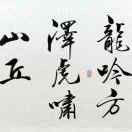 龍吟方
澤虎嘯
山丘